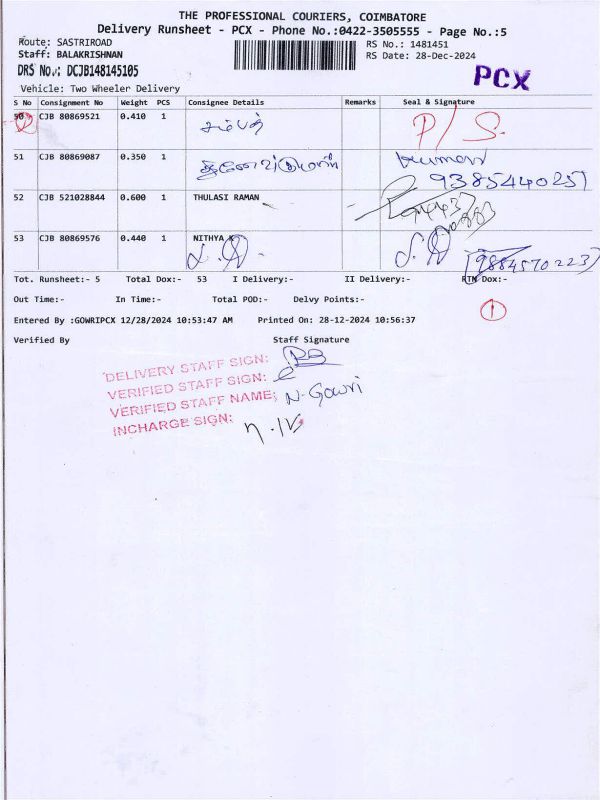 THE PROFESSIONAL COURIERS, COIMBATORE
Delivery Runsheet - PCX - Phone No.:0422-3505555 - Page No.:5
Route: SASTRIROAD
Staff: BALAKRISHNAN
DRS No.: DCJB148145105
Vehicle: Two Wheeler Delivery
RS No.: 1481451
RS Date: 28-Dec-2024
PCX
S No Consignment No Weight PCS Consignee Details Remarks Seal & Signature
50 CJB 80869521 0.410 1 சம்பத் P/S.
51 CJB 80869087 0.350 1 Kumar 9385440251
52 CJB 521028844 0.600 1 THULASI RAMAN
53 CJB 80869576 0.440 1 NITHYA K 9884570223
Tot. Runsheet:- 5 Total Dox:- 53 I Delivery:- II Delivery:- RTN Dox:-
Out Time:- In Time:- Total POD:- Delvy Points:-
1
Entered By :GOWRIPCX 12/28/2024 10:53:47 AM Printed On: 28-12-2024 10:56:37
Verified By Staff Signature
DELIVERY STAFF SIGN:
VERIFIED STAFF SIGN:
VERIFIED STAFF NAME: N-Gowri
INCHARGE SIGN: